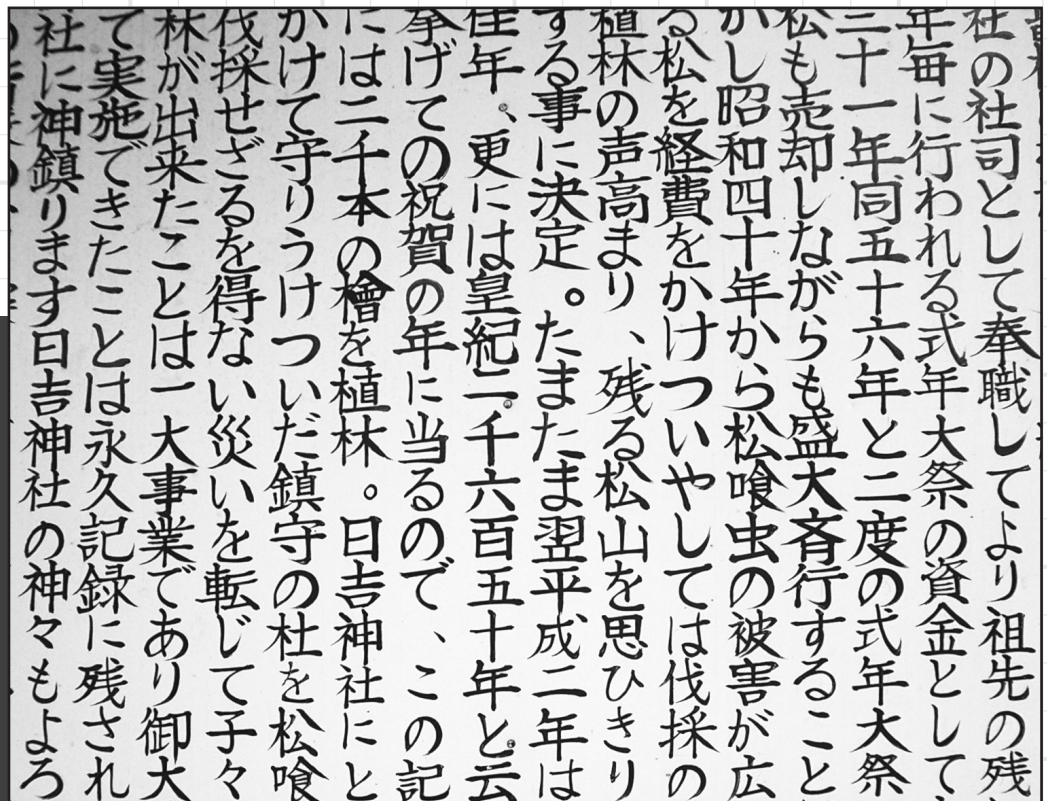 社の社司として奉職してより祖先の残
年毎に行われる式年大祭の資金として
三十一年同五十六年と二度の式年大祭
松も売却しながらも盛大斉行すること
かし昭和四十年から松喰虫の被害が広
る松を経費をかけついやしては伐採の
植林の声高まり、残る松山を思ひきり
する事に決定。たまたま翌平成二年は
佳年。更には皇紀二千六百五十年と云
挙げての祝賀の年に当るので、この記
には二千本の檜を植林。日吉神社にと
かけて守りうけついだ鎮守の杜を松喰
伐採せざるを得ない災いを転じて子々
林が出来たことは一大事業であり御大
て実施できたことは永久記録に残され
社に神鎮ります日吉神社の神々もよろ